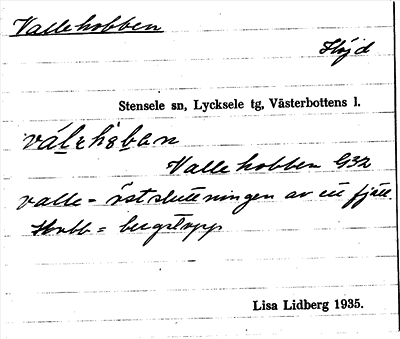 Vallehobben
Höjd
Stensele sn, Lycksele tg, Västerbottens l.
Vallehobben G32
valle = östsluttningen av ett fjäll.
Hobb = bergstopp
Lisa Lidberg 1935.